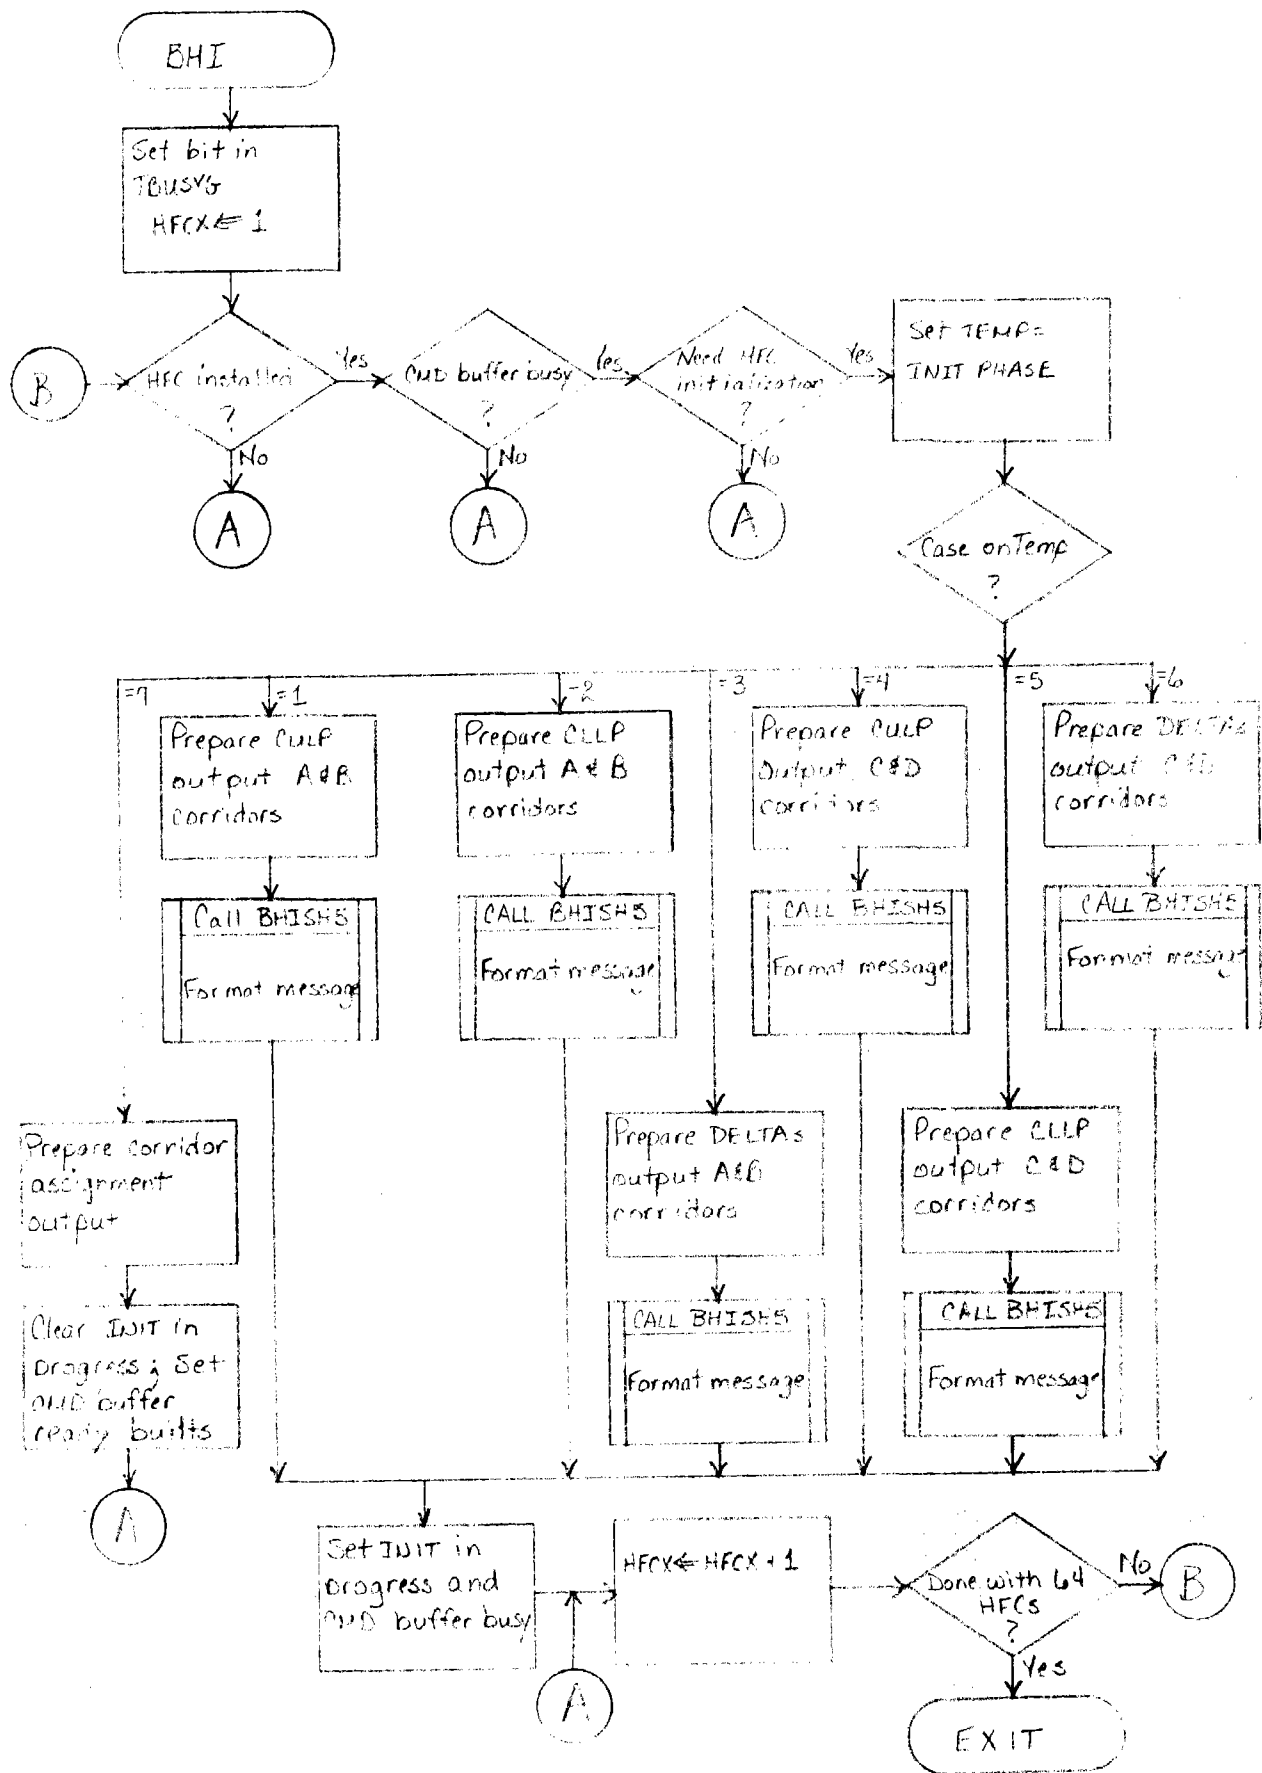 BHI
Set bit in
TBUSYG
HFCX ⇐ 1
B
HFC installed
?
Yes
No
A
CMD buffer busy
?
Yes
No
A
Need HFC
initialization
?
Yes
No
A
Set TEMP=
INIT PHASE
Case on Temp
?
=7
=1
=2
=3
=4
=5
=6
Prepare CULP
output A & B
corridors
Call BHISH5
Format message
Prepare CLLP
output A & B
corridors
CALL BHISH5
Format message
Prepare CULP
output C&D
corritors
CALL BHISH5
Format message
Prepare DELTAs
output C&D
corridors
CALL BHISH5
Format message
Prepare corridor
assignment
output
Clear INIT in
progress; Set
CMD buffer
ready builts
A
Prepare DELTAs
output A&B
corridors
CALL BHISH5
Format message
Prepare CLLP
output C&D
corridors
CALL BHISH5
Format message
Set INIT in
progress and
CMD buffer busy
A
HFCX ⇐ HFCX + 1
Done with 64
HFCs
?
No
B
Yes
EXIT